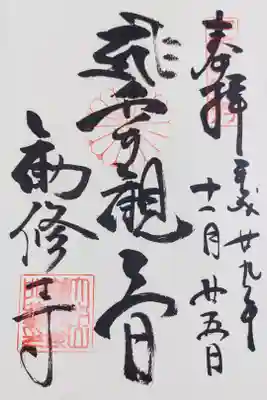 奉拝
平成廿九年
十一月廿五日
飛雲観音
勧修寺